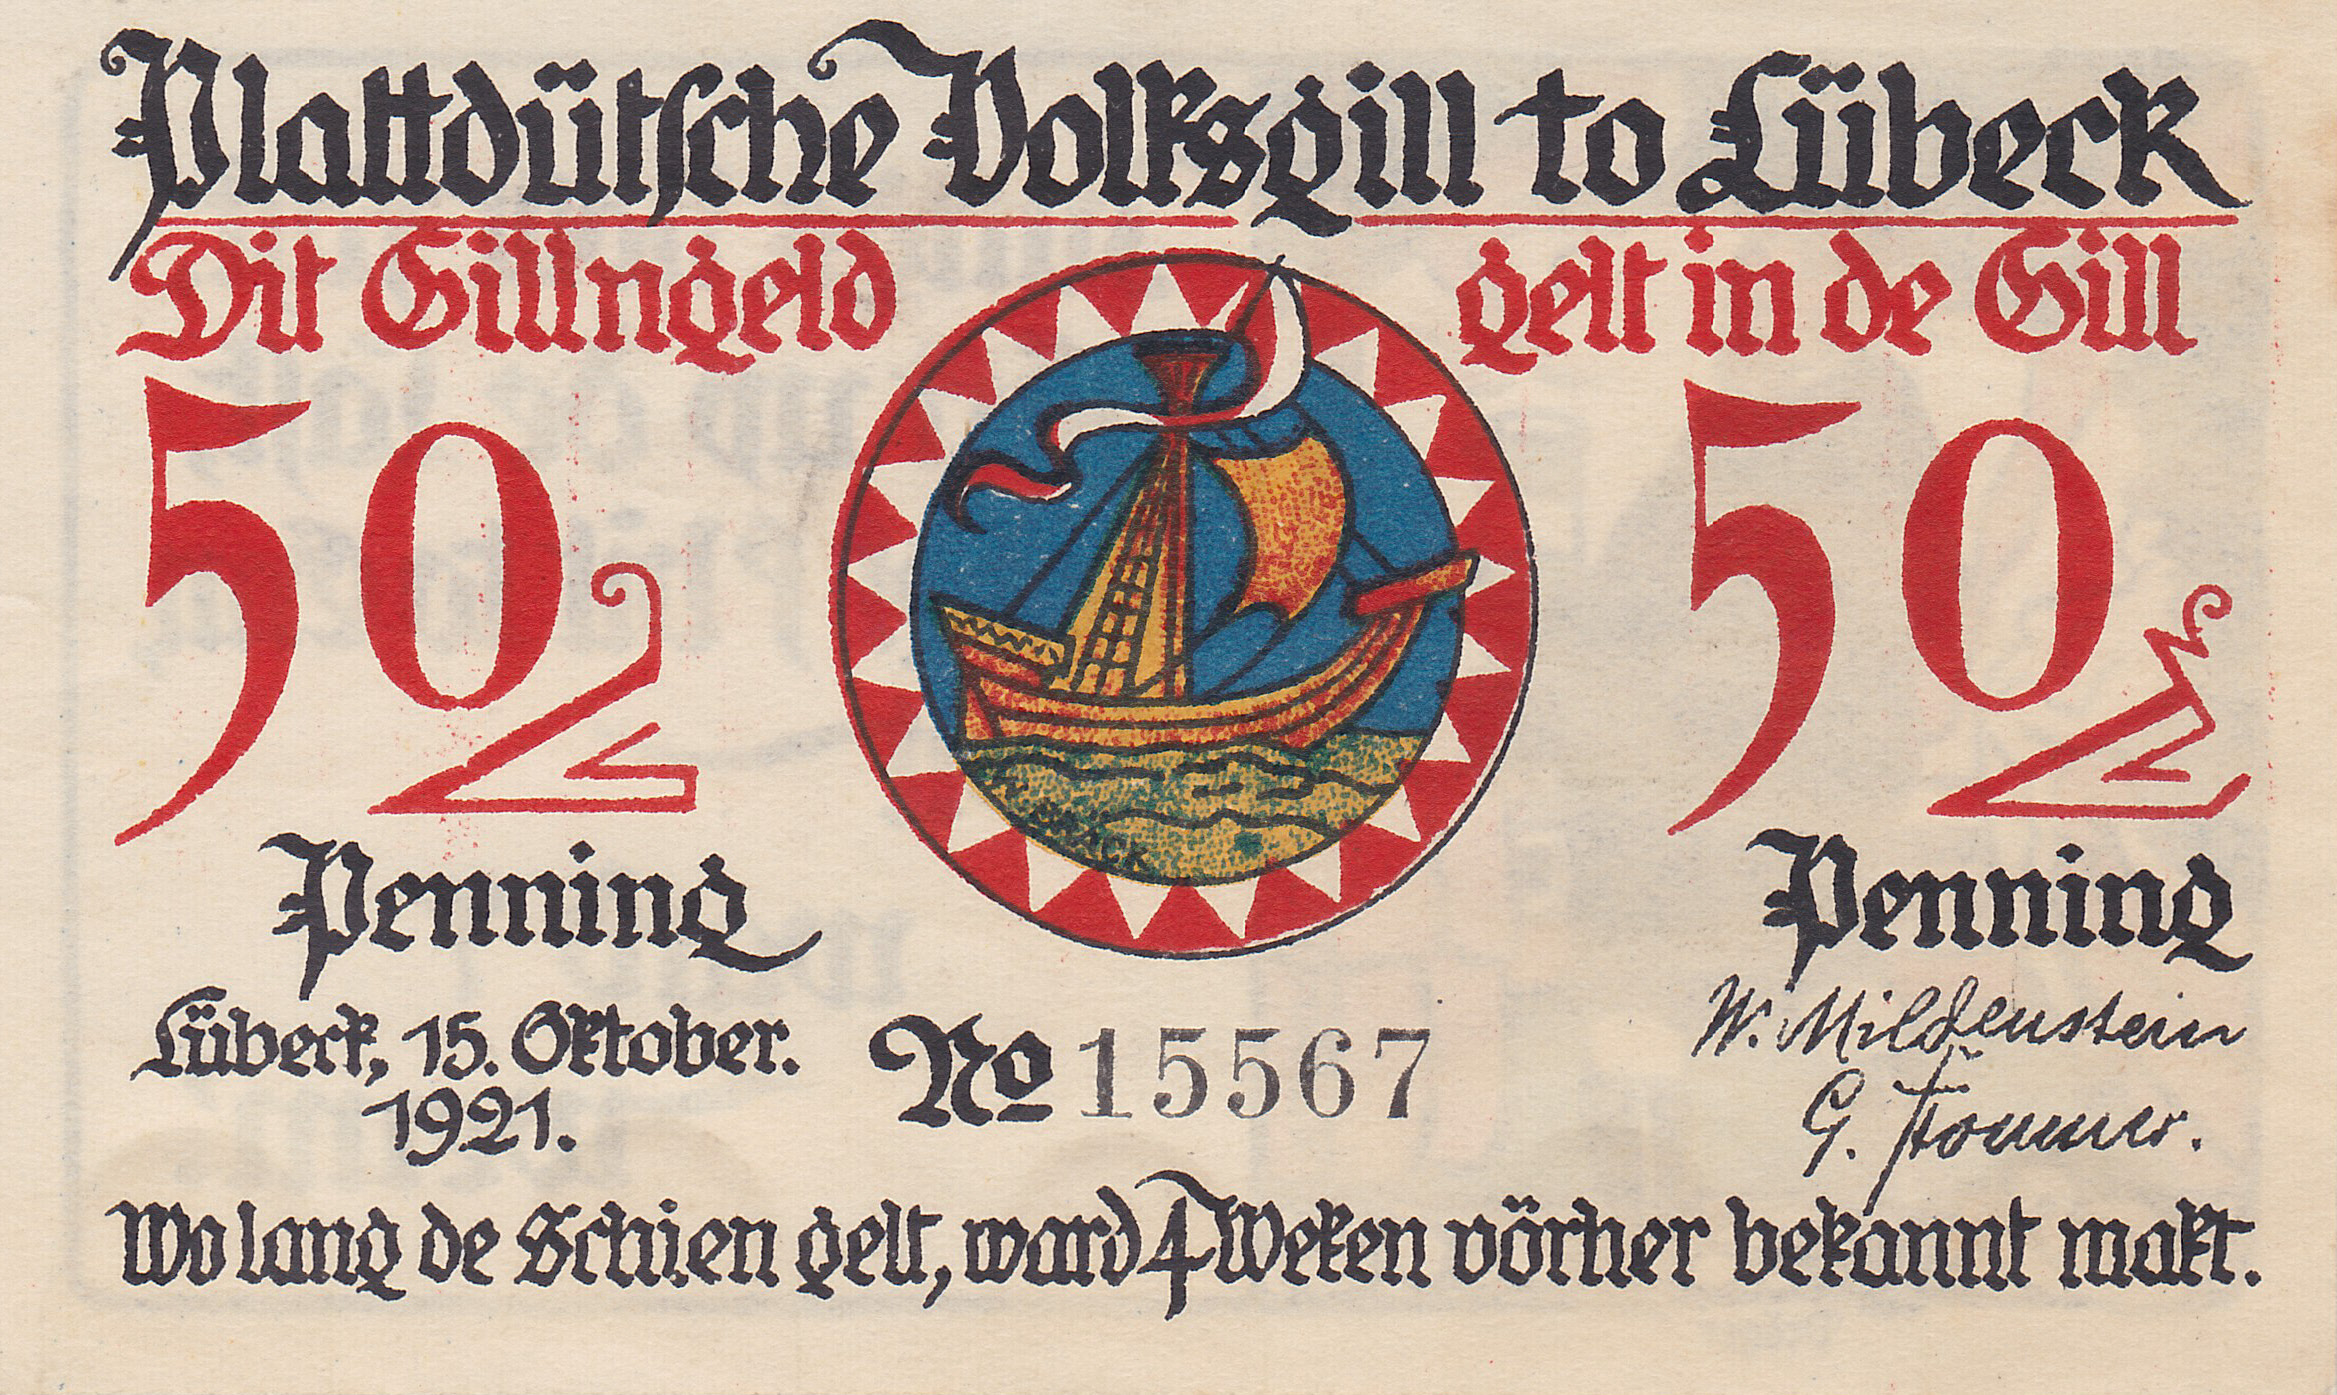 Plattdütsche Volksgill to Lübeck
Dit Gillngeld gelt in de Gill
50 50
Penning Penning
N. BRACK
Lübeck, 15. Oktober.
1921.
No 15567
W. Mildenstein
G.
Wo lang de Schien gelt, ward 4 Weken vörher bekannt makt.